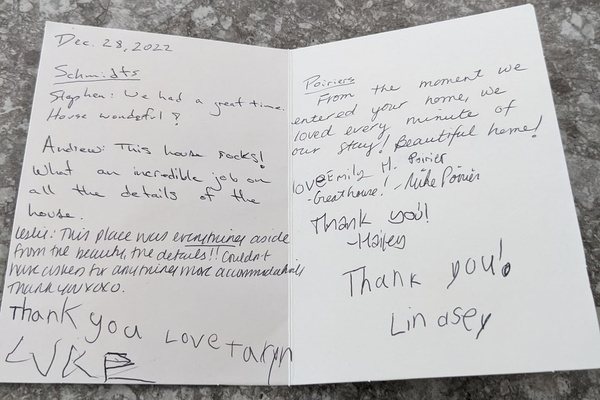 Dec. 28, 2022
Schmidts
Stephen: We had a great time.
House wonderful!
Andrew: This house rocks!
What an incredible job on
all the details of the
house.
Leslie: This place was everything aside
from the beauty, the details!! Couldn't
have asked for anything more accommodating
Thank you xoxo.
Thank you Love Taryn
LUKE
Poiriers
From the moment we
entered your home, we
loved every minute of
our stay! Beautiful home!
love Emily M. Poirier
-Great house! -Mike Poirier
Thank you!
-Hailey
Thank you!
Lindsey